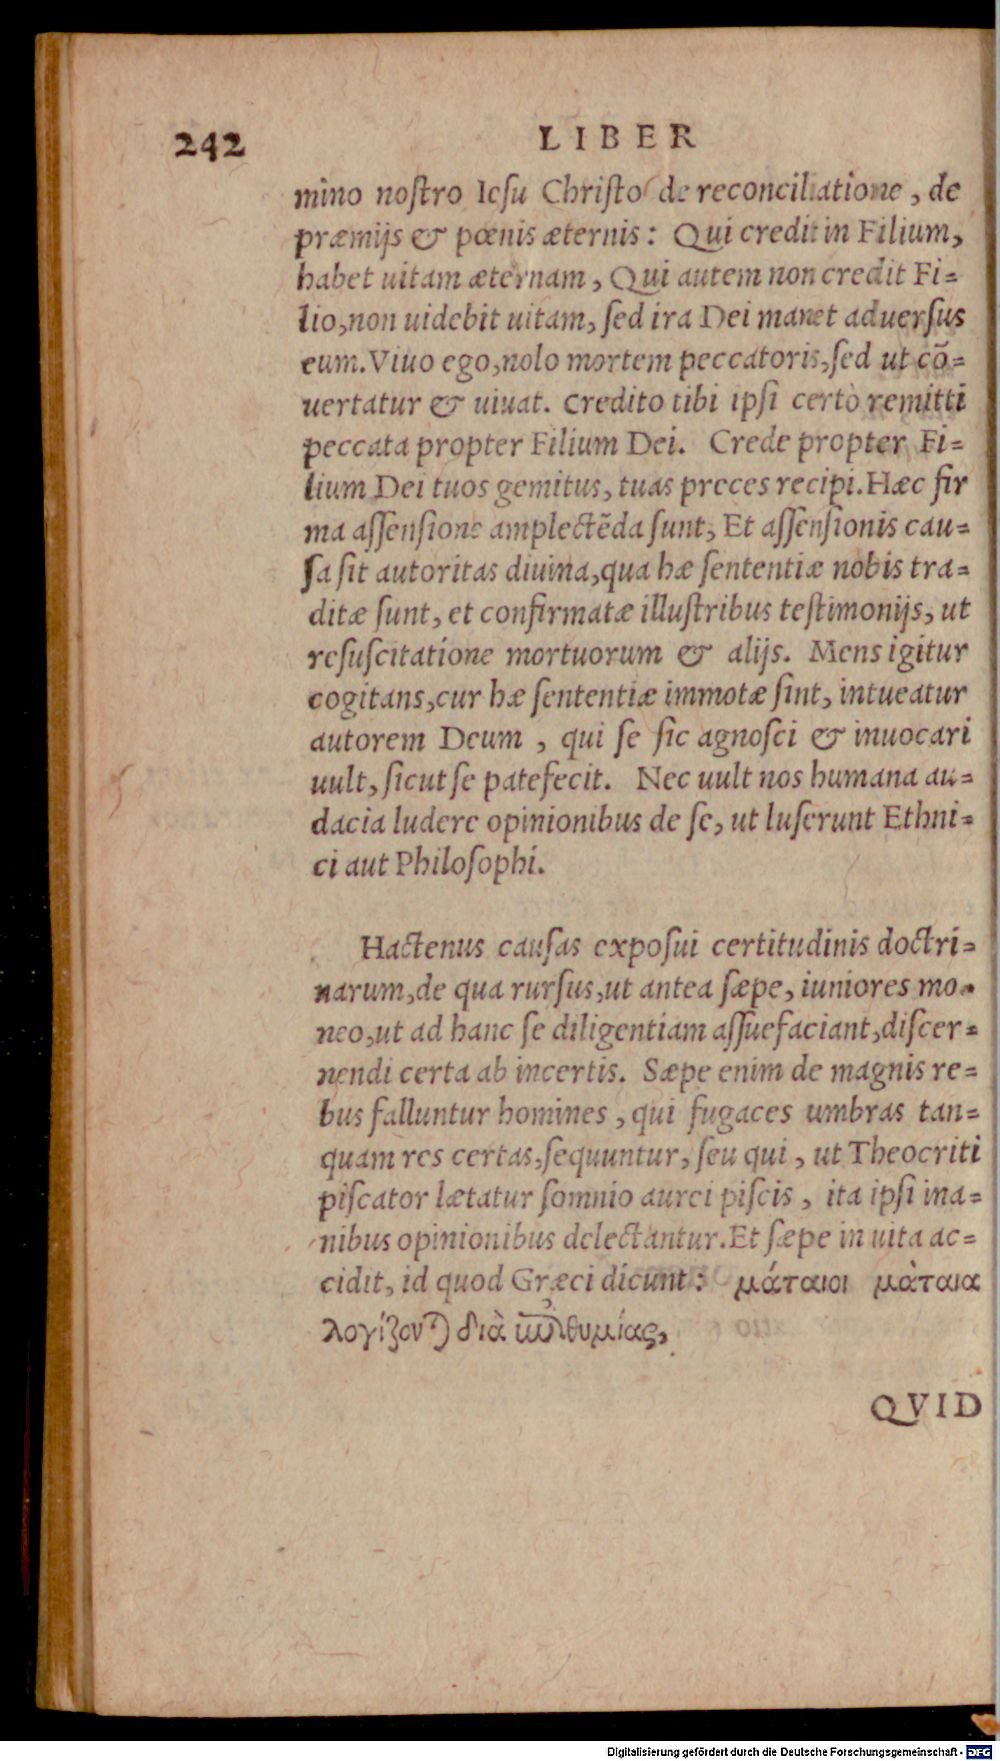 242 LIBER
mino noſtro Ieſu Chriſto de reconciliatione, de
præmijs & pœnis æternis: Qui credit in Filium,
habet uitam æternam, Qui autem non credit Fi=
lio, non uidebit uitam, ſed ira Dei manet aduerſus
eum. Viuo ego, nolo mortem peccatoris, ſed ut cō=
uertatur & uiuat. Credito tibi ipſi certò remitti
peccata propter Filium Dei. Crede propter Fi=
lium Dei tuos gemitus, tuas preces recipi. Hæc fir
ma aſſenſione amplectēda ſunt, Et aſſenſionis cau=
ſa ſit autoritas diuina, qua hæ ſententiæ nobis tra=
ditæ ſunt, et confirmatæ illuſtribus teſtimonijs, ut
reſuſcitatione mortuorum & alijs. Mens igitur
cogitans, cur hæ ſententiæ immotæ ſint, intueatur
autorem Deum, qui ſe ſic agnoſci & inuocari
uult, ſicut ſe patefecit. Nec uult nos humana au=
dacia ludere opinionibus de ſe, ut luſerunt Ethni=
ci aut Philoſophi.
Hactenus cauſas expoſui certitudinis doctri=
narum, de qua rurſus, ut antea ſæpe, iuniores mo=
neo, ut ad hanc ſe diligentiam aſſuefaciant, diſcer=
nendi certa ab incertis. Sæpe enim de magnis re=
bus falluntur homines, qui fugaces umbras tan=
quam res certas, ſequuntur, ſeu qui, ut Theocriti
piſcator lætatur ſomnio aurei piſcis, ita ipſi ina=
nibus opinionibus delectantur. Et ſæpe in uita ac=
cidit, id quod Græci dicunt: μάταιοι μὰταια
λογίζονται διὰ
QVID
Digitalisierung gefördert durch die Deutsche Forschungsgemeinschaft - DFG